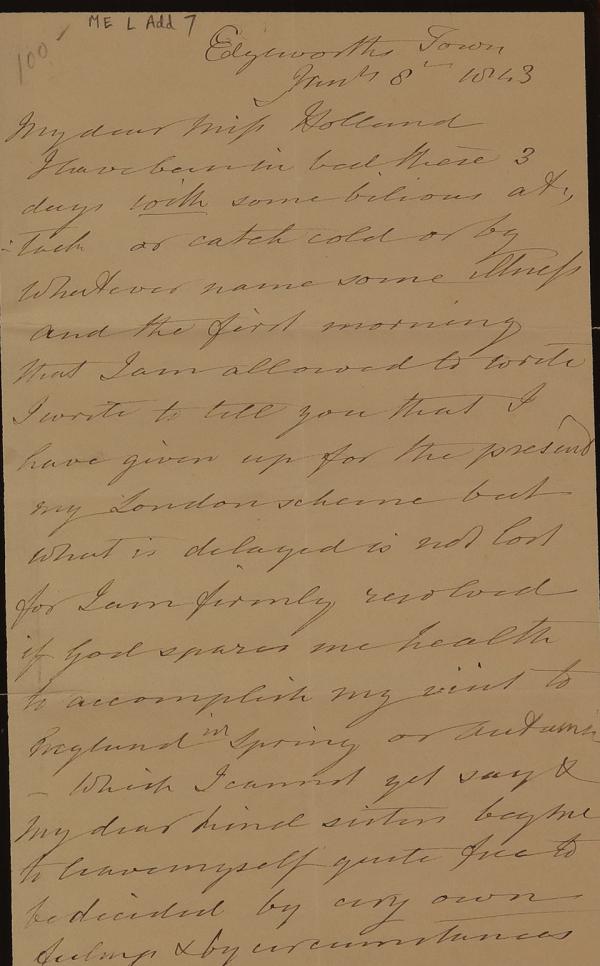 ME L Add 7
100
Edgeworths Town
Jany 8th 1843
My dear Miss Holland
I have been in bed these 3
days with some bilious at-
-tack or catch cold or by
whatever name some illness
and the first morning
that I am allowed to write
I write to tell you that I
have given up for the present
my London scheme but
what is delayed is not lost
for I am firmly resolved
if God spares me health
to accomplish my visit to
England in Spring or Autumn
- Which I cannot yet say &
my dear kind sisters beg me
to leave myself quite free to
be decided by my own
feelings & by circumstances